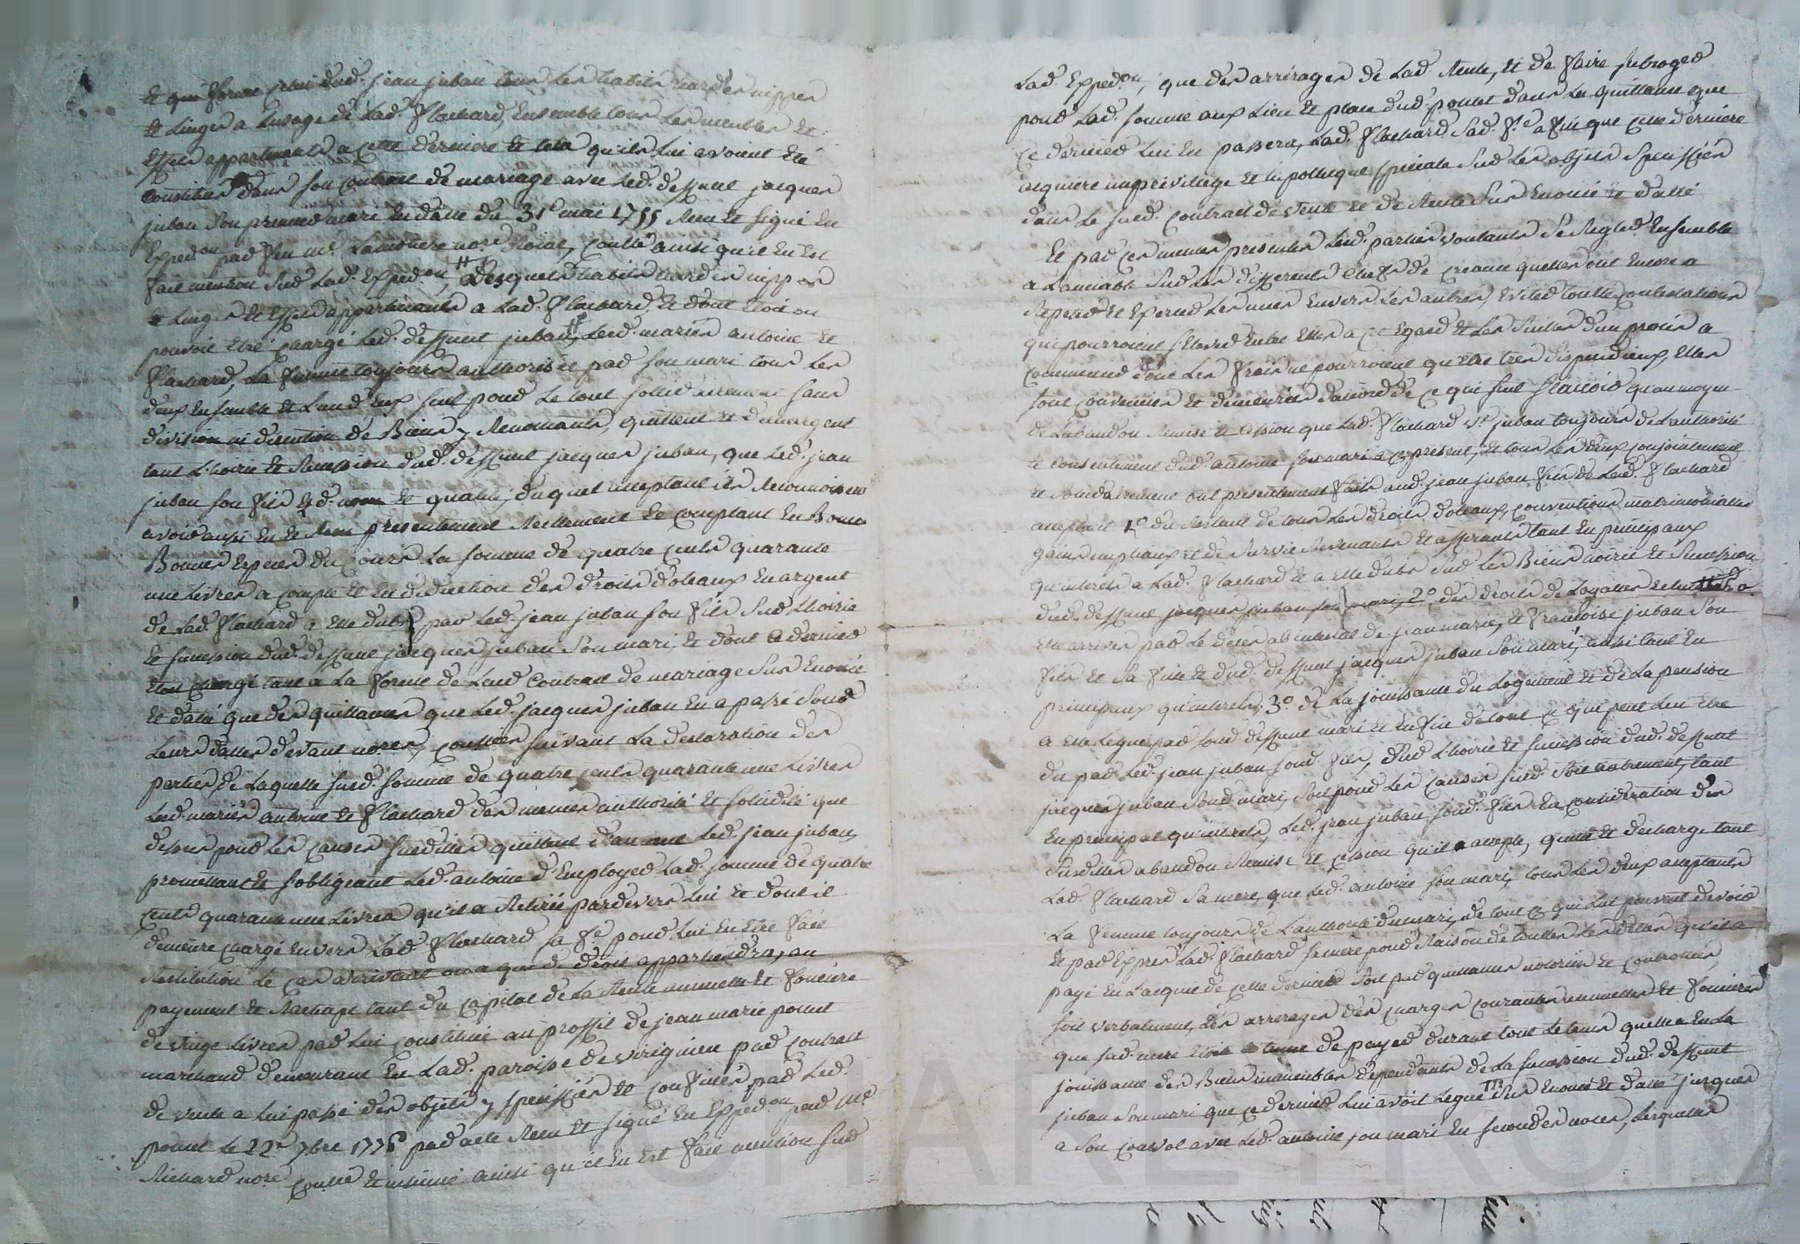 et qui forme celui dud. jean juban tous les habits hardes nippes
et linges a lusage de lad. flachard, Ensemble tous les meubles et
Effets appartenants a cette derniere et tels qu'ils lui avoient été
constitués dans son contract de mariage avec led. deffunt jacques
juban son premier mari En datte du 31e mai 1755 Recu et signé En
Exped.on par feu me. nore Roial, controllé ainsi qu'il En est
fait mention sur lad. Exped.on, desquels habits hardes nippes
et linges et Effets appartenants a lad. flachard et dont étoit ou
pouvoit être chargé led. deffunt juban, lesd. mariés antoine et
flachard, la femme toujours authorisée par son mari tous les
deux Ensemble et l'un d'eux seul pour le tout solidairement sans
division ni discution de Biens y Renoncants, quittent et dechargent
tant l'hoirie et succession dud. deffunt jacques juban, que led. jean
juban son fils qd. et qualité, duquel acceptant ils Reconnoissent
avoir aussi Eu et Recu presentement Reellement et comptant En Bonnes
Bonnes Especes du cours la somme de quatre cents quarante
une livres a compte et En deduction des droits dotaux En argent
de lad. flachard a elle dubs par led. jean juban son fils sur l'hoirie
et succession dud. deffunt jacques juban son mari, et dont ce dernier
étoit chargé tant a la forme de leurd. contract de mariage sus Enoncé
et datté que des quittances que led. jacques juban En a passé sous
leurs dattes devant nores, controllées suivant la declaration des
parties, de laquelle susd. somme de quatre cents quarante une livres
lesd. mariés antoine et flachard des memes authorité et solidité que
dessus pour les causes susdittes quittent d'autant led. jean juban,
promettant et s'obligeant led. antoine d'Employer lad. somme de quatre
cents quarante une livres qu'il a Retirée pardevers lui et dont il
demeure chargé Envers lad. flachard sa fe. pour lui En être fait
Restitution le cas arrivant ou a qui de droit appartiendra, au
payement et Rachapt tant du capital de la Rente annuelle et fonciere
de vingt livres par lui constituée au proffit de jean marie ponset
marchand demeurant En lad. paroisse de virigneu par contract
de vente a lui passé des objets y speciffiés et confinés par led.
ponset le 22e 7bre 1778 par acte Recu et signé En Exped.on par me.
Richard nore controllé et insinué ainsi qu'il En est fait mention sur
lad. Exped.on, que des arrérages de lad. Rente, et de faire subroger
pour lad. somme aux lieu et place dud. ponset dans la quittance que
ce dernier lui En passera, lad. flachard sad. fe. afin que cette derniere
acquiere un privilege et hipotheque speciale sur les objets speciffiés
dans le susd. contract de vente et de Rente sus Enoncé et datté
Et par ces memes presentes lesd. parties voulants se Regler Ensemble
a l'amiable sur les differents chefs de creance quelles ont Encore a
Repeter et Exercer les unes Envers les autres, Eviter toutte contestations
qui pourroient s'elever Entre Elles a cet Egard et les suittes d'un procès a
commencer dont les frais ne pourroient qu'être tres dispendieux Elles
sont convenues et demeurées d'accord de ce qui suit scavoir qu'au moyen
de labandon Remise et cession que lad. flachard ve. juban toujours de l'authorité
et consentement dud. antoine son mari a ce present, et tous les deux conjointement
et solidairement ont presentement faits aud. jean juban fils de lad. flachard
acceptant 1° du Restant de tous les droits dotaux, conventions matrimonialles
gains nuptiaux et de survie survenants et afferants tant En principaux
qu'interets a lad. flachard et a elle dubs sur les Biens hoirie et succession
dud. deffunt jacques juban son mari, 2° des droits de legataire
Elle arrivés par le déces ab intestat de jean marie, et francoise juban son
fils et sa fille et dud. deffunt jacques juban son mari, aussi tant En
principaux qu'interets, 3° de la jouissance du logement et de la pension
a elle leguée par sond. deffunt mari et Enfin de tout ce qui peut lui être
du par led. jean juban sond. fils, sur l'hoirie et succession dud. deffunt
jacques juban sond. mari, soit pour les causes susd. soit autrement, tant
En principal qu'interets, led. jean juban sond. fils En consideration des
susdittes abandon Remise et cession qu'il accepte, quitte et decharge tant
lad. flachard sa mere, que led. antoine son mari, tous les deux acceptants
la femme toujours de l'authorité du mari, de tout ce qui lui peuvent devoir
et par Exprès lad. flachard sa mere pour Raison de touttes les dettes qu'il a
payé En l'acquit de cette derniere soit par quittances notoriées et controllées,
soit verbalement, des arrerages des charges courantes annuelles et foncieres
que sad. mere étoit tenue de payer durant tout le tems quelle a Eu la
jouissance des Biens immeubles dépendants de la succession dud. deffunt
juban son mari que ce dernier lui avoit legué sus Enoncé et datté jusques
a son convol avec led. antoine son mari En secondes noces, lesquelles